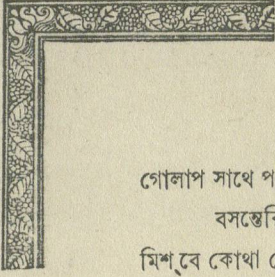 গোলাপ সাথে প
বসন্তেরি
মিশ্‌বে কোথা